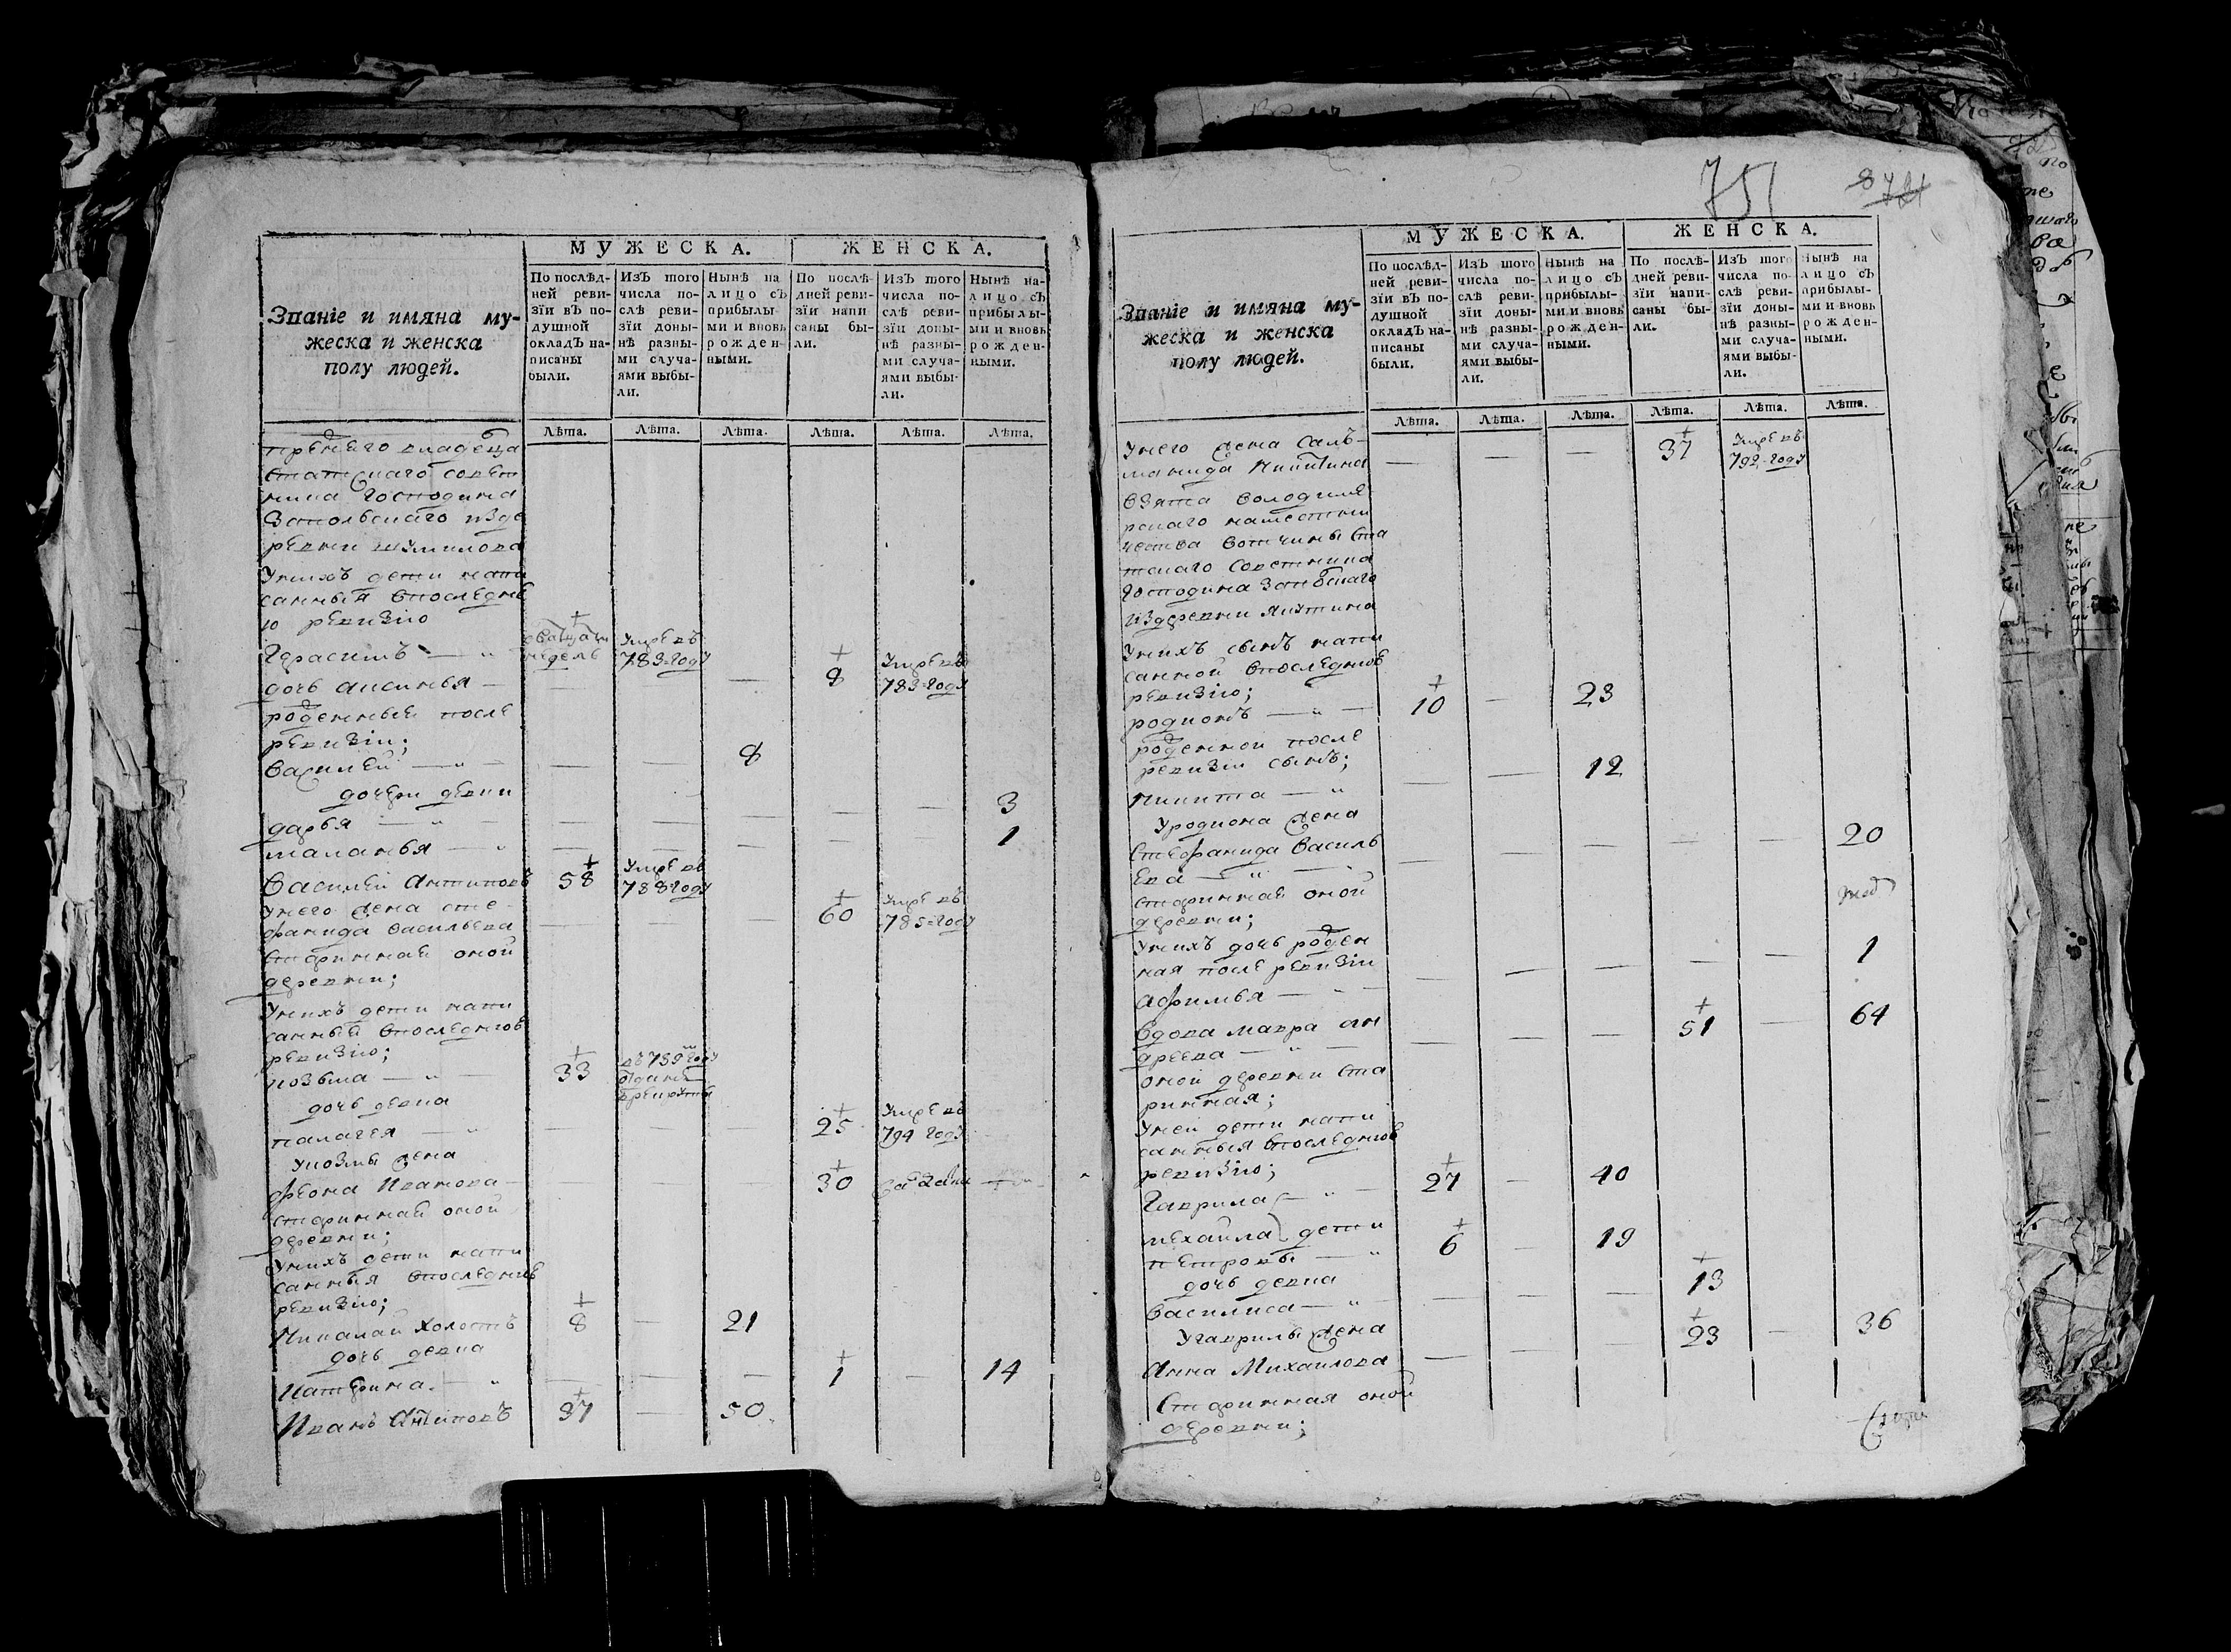 751
МУЖЕСКА. ЖЕНСКА.
Званіе и имяна му-
жеска и женска
полу людей.
По послѣд-
ней реви-
зїи въ по-
душной
окладъ на-
писаны
были.
Изъ того
числа по-
слѣ реви-
зїи доны-
нѣ разны-
ми случа-
ями выбы-
ли.
Нынѣ на
лицо съ
прибылы-
ми и вновь
рожден-
ными.
По послѣ-
дней реви-
зїи напи
саны бы-
ли.
Изъ того
числа по-
слѣ реви-
зїи доны-
нѣ разны-
ми случа-
ями выбы-
ли.
Нынѣ на-
лицо съ
прибылы-
ми и вновь
рожден-
ными.
Лѣта. Лѣта. Лѣта. Лѣта. Лѣта. Лѣта.
прежнего владельца
статскаго совет
ника господина
из де
ревни шумилова
У нихъ дети напи
санныя в последню
ю ревизию
Герасимъ — недель Умре въ 783 = году
дочь аксинья — 8 Умре въ 783 = году
рожденные после
ревизии;
василей — 8
дочери девки
дарья — 3
маланья — 1
василей антиповъ 58 Умре въ 788 году
У него жена сте
фанида васильева 60 Умре въ 785 = году
старинная оной
деревни;
У нихъ дети напи
санныя в последнюю
ревизию;
козьма — 33 въ 789 году отданъ в рекруты
дочь девка
палагея — 25 Умре въ 794 году
У козмы жена
феона Иванова — 30
старинная оной
деревни;
У нихъ дети напи
санныя в последнюю
ревизию;
Николай холостъ 8 — 21
дочь девка
катерина — 1 — 14
Иванъ Антиповъ 37 — 50
МУЖЕСКА. ЖЕНСКА.
Званіе и имяна му-
жеска и женска
полу людей.
По послѣд-
ней реви-
зїи въ по-
душной
окладъ на-
писаны
были.
Изъ того
числа по-
слѣ реви-
зїи доны-
нѣ разны-
ми случа-
ями выбы-
ли.
Нынѣ на
лицо съ
прибылы-
ми и вновь
рожден-
ными.
По послѣ-
дней реви-
зїи напи-
саны бы-
ли.
Изъ того
числа по-
слѣ реви-
зїи доны-
нѣ разны-
ми случа-
ями выбы-
ли.
Нынѣ на
лицо съ
прибылы-
ми и вновь
рожден-
ными.
Лѣта. Лѣта. Лѣта. Лѣта. Лѣта. Лѣта.
У него жена саль-
манида Никитина — — — 37 Умре въ 792 = году
взята володиме
рскаго наместни
чества вотчины ста
тскаго советника
господина
из деревни
У нихъ сынъ напи
санной в последнюю
ревизию;
родионъ — 10 — 23
рожденной после
ревизии сынъ;
Никита — 12
У родиона жена
Стефанида василь
ева — 20
старинная оной
деревни;
У нихъ дочь рожден
ная после ревизии
афимья — 1
вдова мавра ан
дреева — 51 — 64
оной деревни ста
ринная;
У ней дети напи
санныя в последнюю
ревизию;
Гаврила — 27 — 40
михаила дети
петровы — 6 — 19
дочь девка
василиса — 13
У гаврилы жена
Анна Михаилова 23 — 36
Старинная оной
деревни;